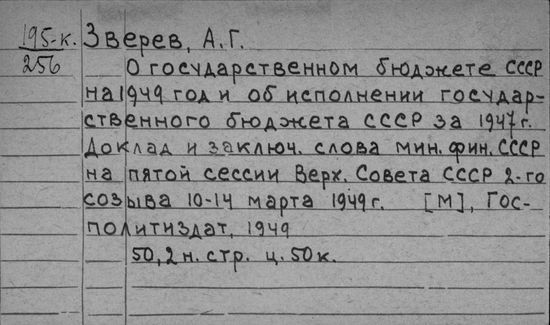 195-к. Зверев, А.Г.
256 О государственном бюджете СССР
на 1949 год и об исполнении государ-
ственного бюджета СССР за 1947г.
Доклад и заключ. слова мин. фин. СССР
на пятой сессии Верх. Совета СССР 2-го
созыва 10-14 марта 1949г. [М], Гос-
политиздат, 1949
50,2 н. стр. ц. 50к.